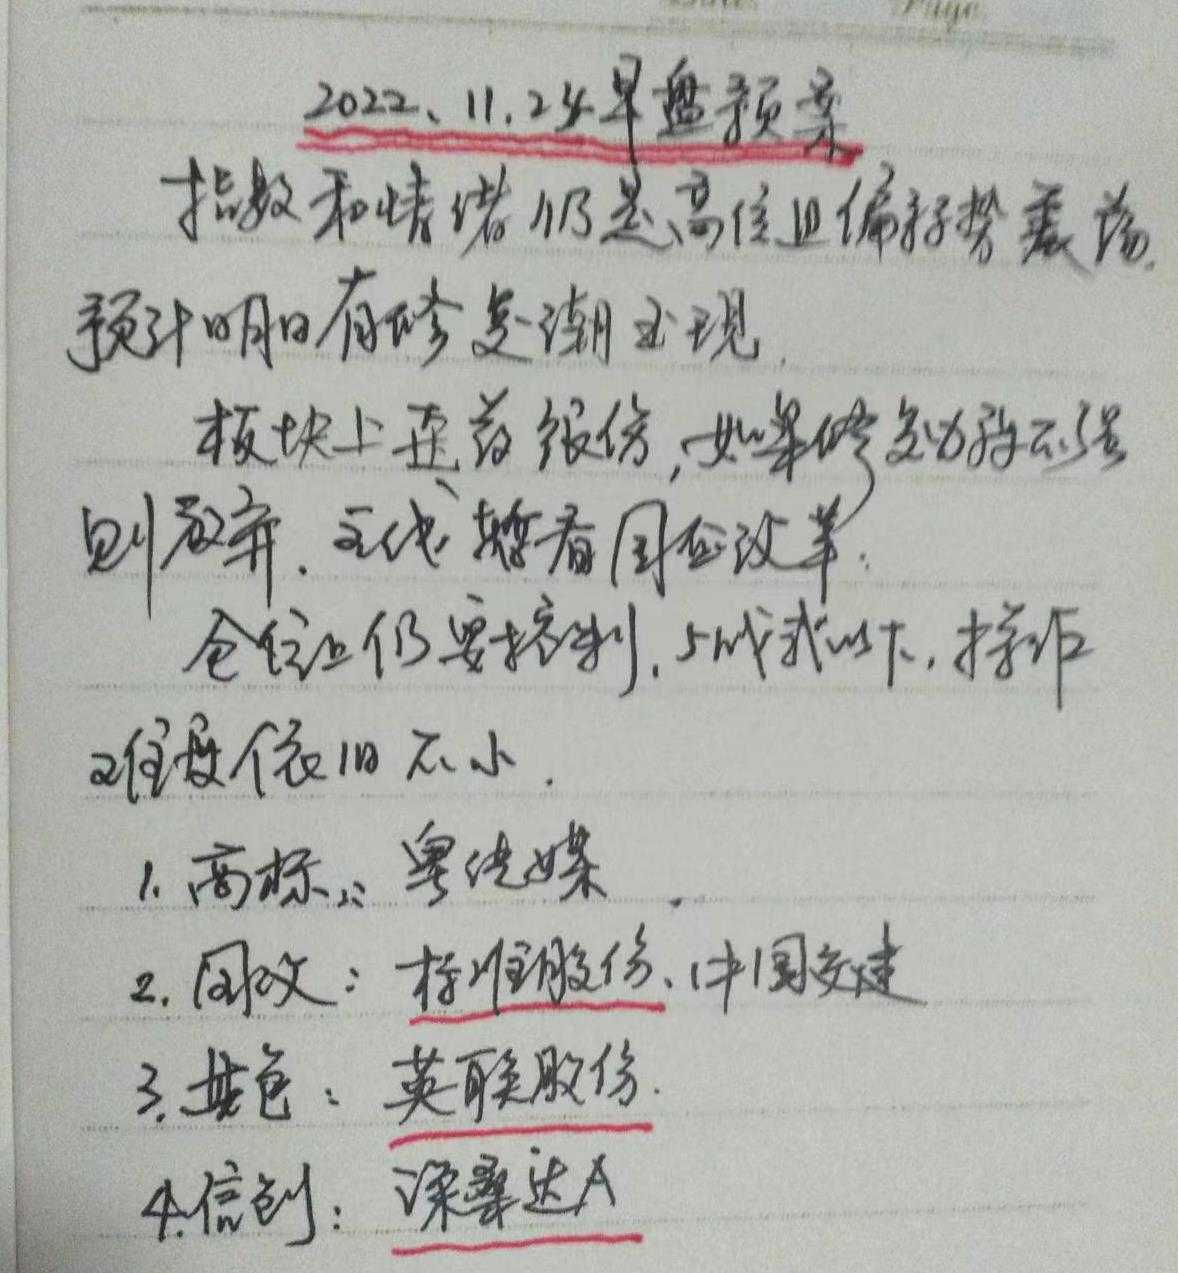 2022、11.24早盘预案
指数和情绪仍是高位且偏弱势震荡.
预计明日有修复潮出现.
板块上医药很伤,如果修复力度不强
则放弃.主线暂看国企改革.
仓位上仍要控制,5成或以下,操作
难度依旧不小.
1.高标:粤传媒.
2.国改:标准股份、中国交建
3.其它:英联股份.
4.信创:深桑达A